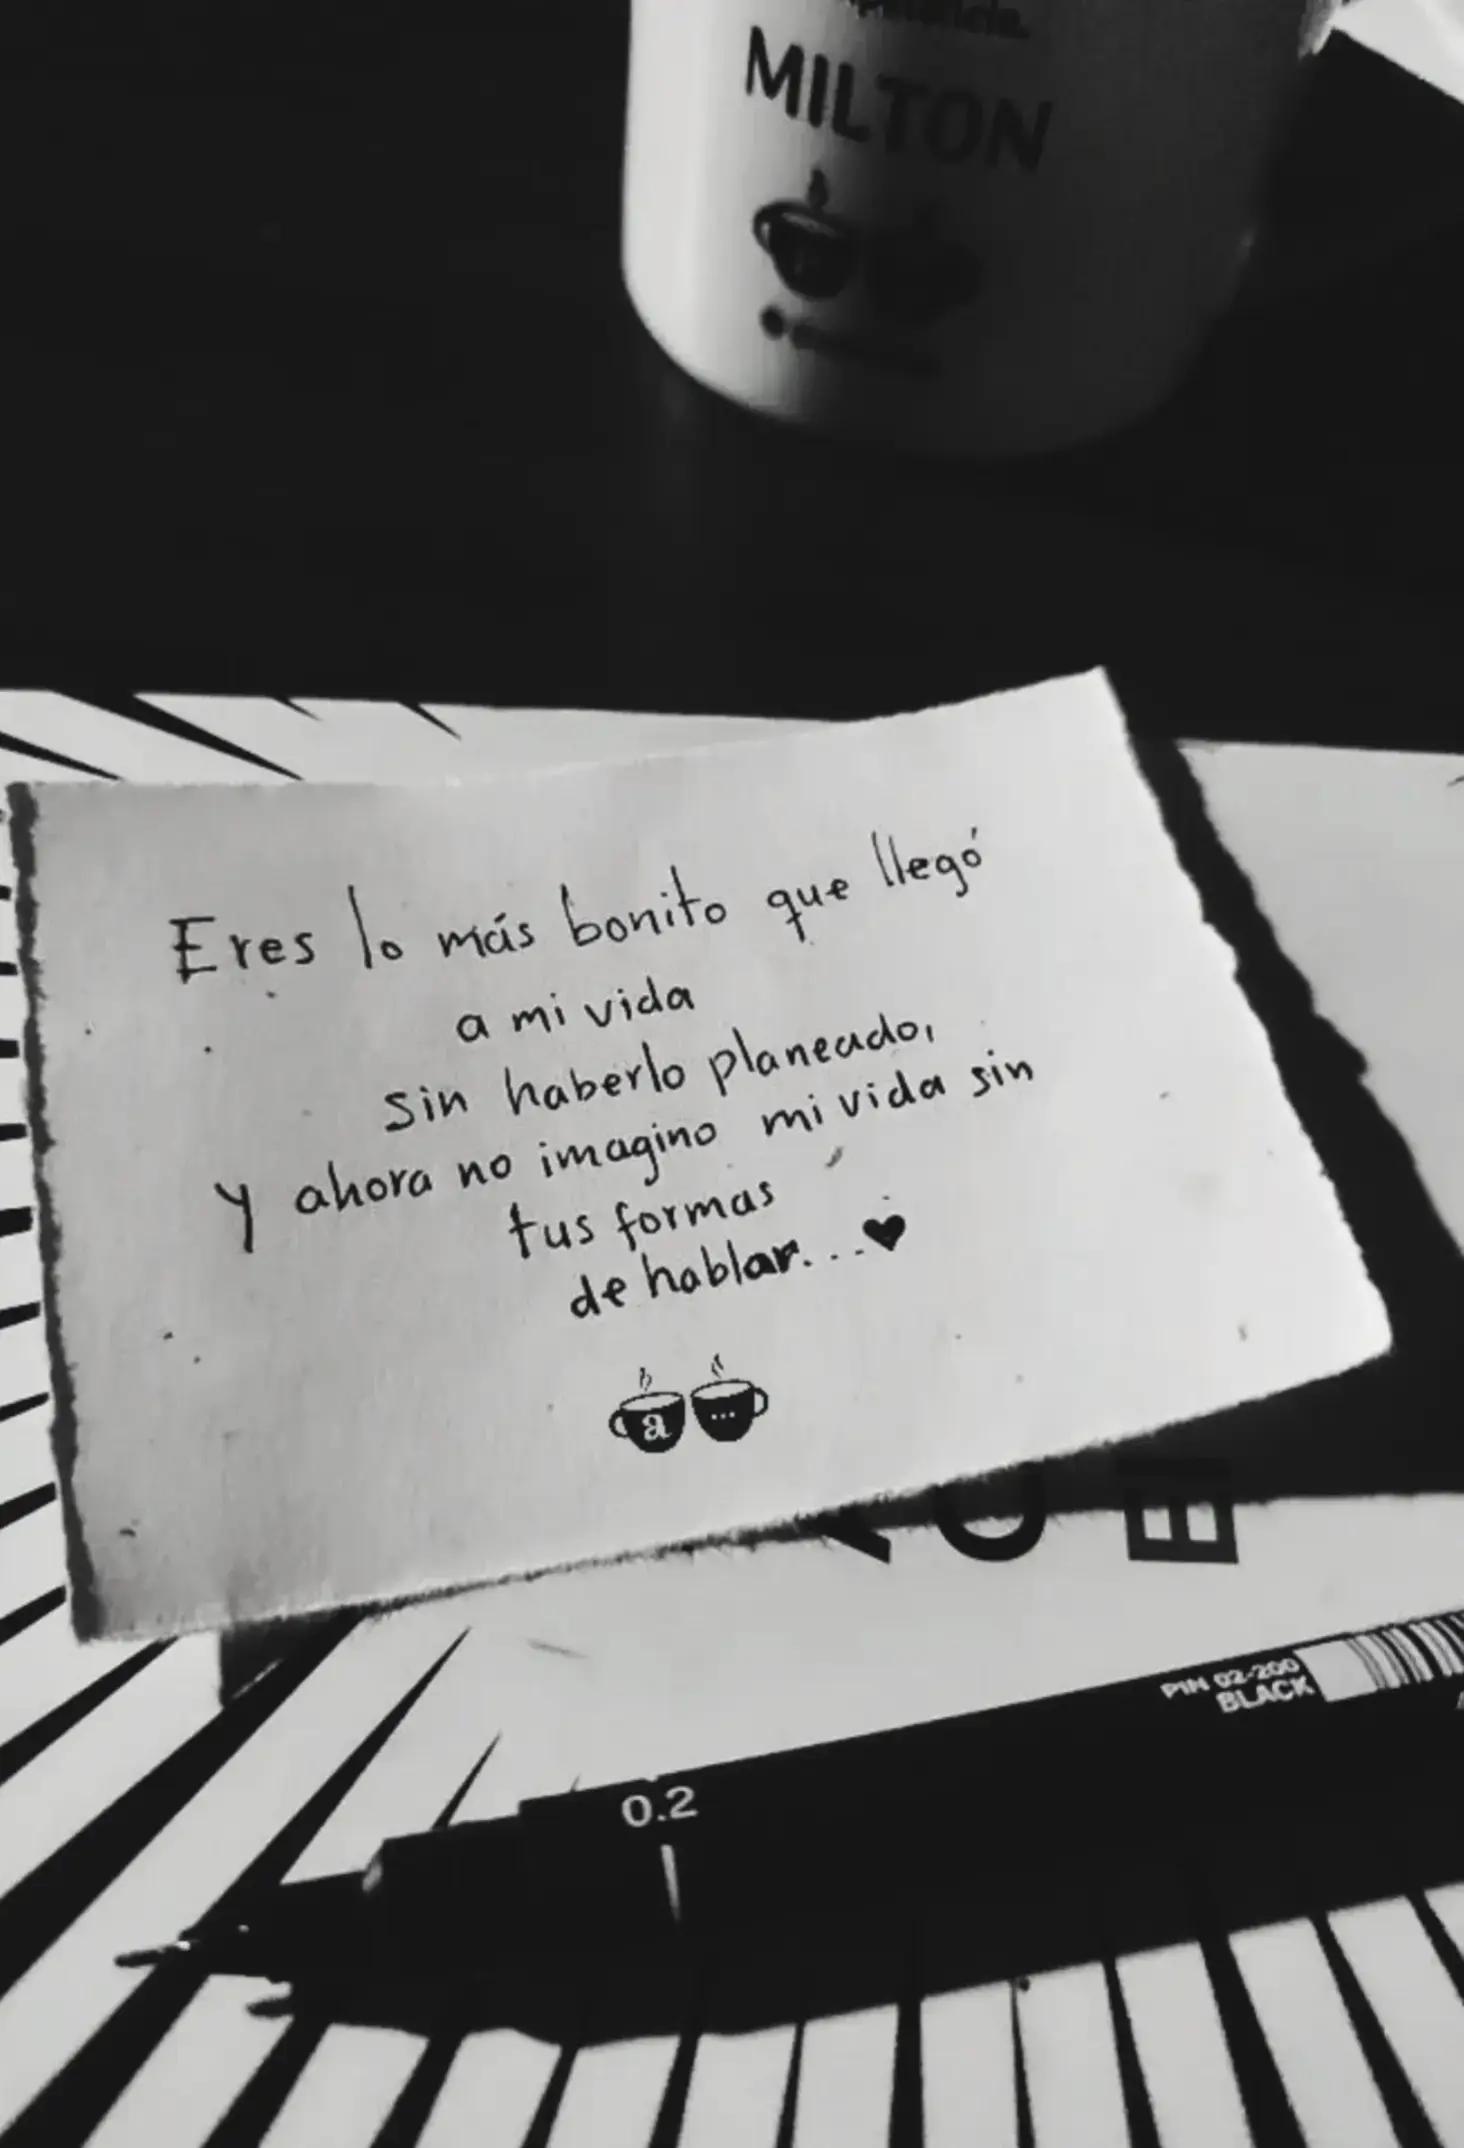 MILTON
Eres lo más bonito que llegó
a mi vida
sin haberlo planeado,
y ahora no imagino mi vida sin
tus formas
de hablar....♥
a ...
PIN 02-200
BLACK
0.2